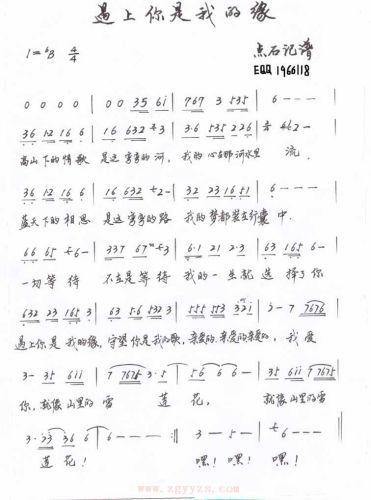 遇上你是我的缘
1=♭B 4/4 点石记谱
EQQ 1966118
0 0 0 0 | 0 0 35 6i | 767 3 535 | 6 - - -
36 12 16 6 | 16 632 3 | 3·6 535 226 |
高山下的情歌 是这弯弯的河, 我的心在那河水里 流,
36 12 16 6 | 16 632 2- | 32 23 16 51 | 6 - - -
蓝天下的相思 是这弯弯的路 我的梦都装在行囊 中.
66 65 6- | 337 67 3 | 6·1 21 2·3 | 63 165 6-
一切等待 不在是等待 我的一生就选择了你
632 23 165 3 | 63 56 532 3 | 555 553 321 | 2- 7 7676
遇上你是我的缘, 守望你是我的歌, 亲爱的,亲爱的亲爱的, 我爱
3- 35 6ii | 7 7675 3·5 | 56 6 6- | 35 6ii 7 7675
你, 就像山里的雪 莲花, 就像山里的雪
3·23 36 6 | 6 - - - :|| 3 - 5 - | 6 - - -
莲花! 嘿! 嘿! 嘿!
www.zgyyzs.com